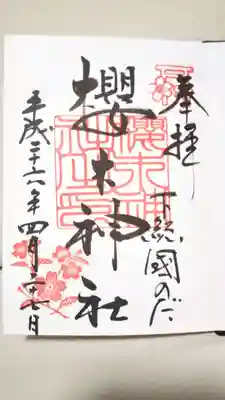 奉拝
下総國のだ
櫻木神社
櫻木神社之印
平成二十六年四月二十七日